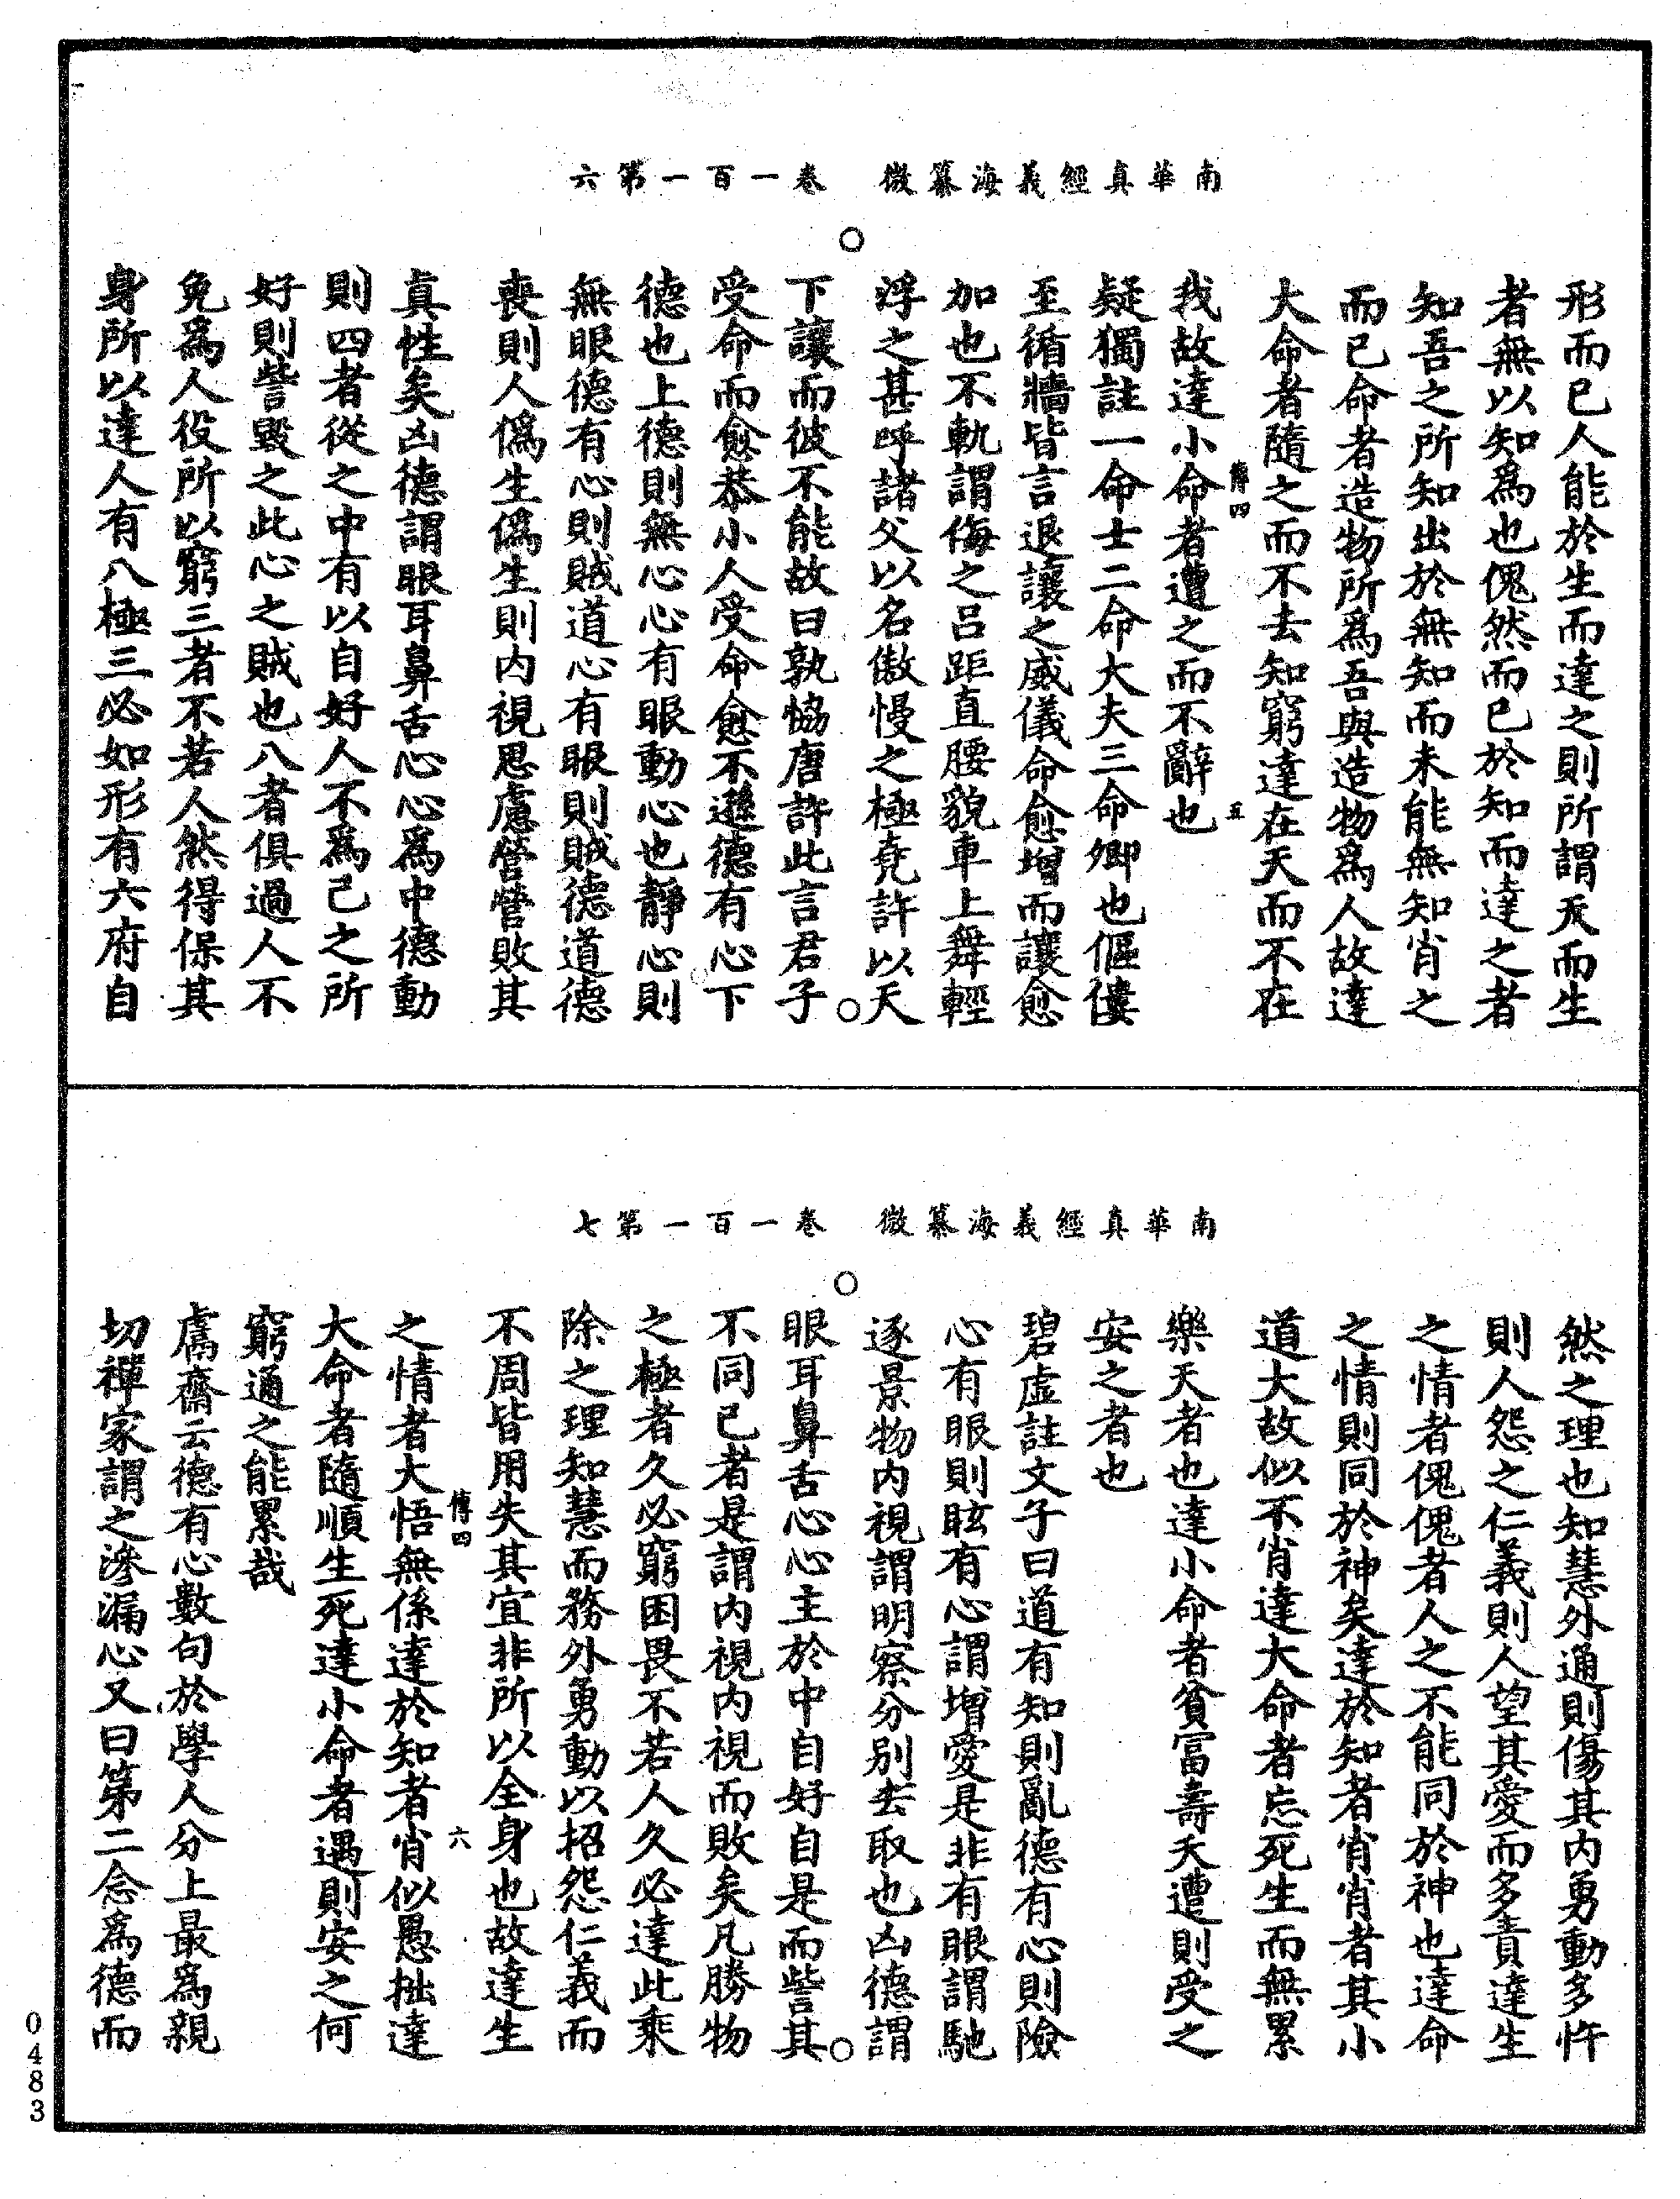 南華真經義海纂微　卷一百一第六
形而已人能於生而達之則所謂天而生
者無以知為也傀然而已於知而達之者
知吾之所知出於無知而未能無知肖之
而已命者造物所為吾與造物為人故達
大命者隨之而不去知窮達在天而不在
傳四　五
我故達小命者遭之而不辭也
疑獨註一命士二命大夫三命卿也傴僂
至循牆皆言退讓之威儀命愈增而讓愈
加也不軌謂侮之呂距直腰貌車上舞輕
浮之甚呼諸父以名傲慢之極堯許以天
下讓而彼不能故曰孰恊唐許此言君子
受命而愈恭小人受命愈不遜德有心下
德也上德則無心心有眼動心也靜心則
無眼德有心則賊道心有眼則賊德道德
喪則人偽生偽生則內視思慮營營敗其
真性矣凶德謂眼耳鼻舌心心為中德動
則四者從之中有以自好人不為己之所
好則訾毀之此心之賊也八者俱過人不
免為人役所以窮三者不若人然得保其
身所以達人有八極三必如形有六府自
南華真經義海纂微　卷一百一第七
然之理也知慧外通則傷其內勇動多忤
則人怨之仁義則人望其愛而多責達生
之情者傀傀者人之不能同於神也達命
之情則同於神矣達於知者肖肖者其小
道大故似不肖達大命者忘死生而無累
樂天者也達小命者貧富壽夭遭則受之
安之者也
碧虛註文子曰道有知則亂德有心則險
心有眼則眩有心謂增愛是非有眼謂馳
逐景物內視謂明察分別去取也凶德謂
眼耳鼻舌心心主於中自好自是而訾其
不同己者是謂內視內視而敗矣凡勝物
之極者久必窮困畏不若人久必達此乘
除之理知慧而務外勇動以招怨仁義而
不周皆用失其宜非所以全身也故達生
傳四　六
之情者大悟無係達於知者肖似愚拙達
大命者隨順生死達小命者遇則安之何
窮通之能累哉
鬳齋云德有心數句於學人分上最為親
切禪家謂之滲漏心又曰第二念為德而
0483